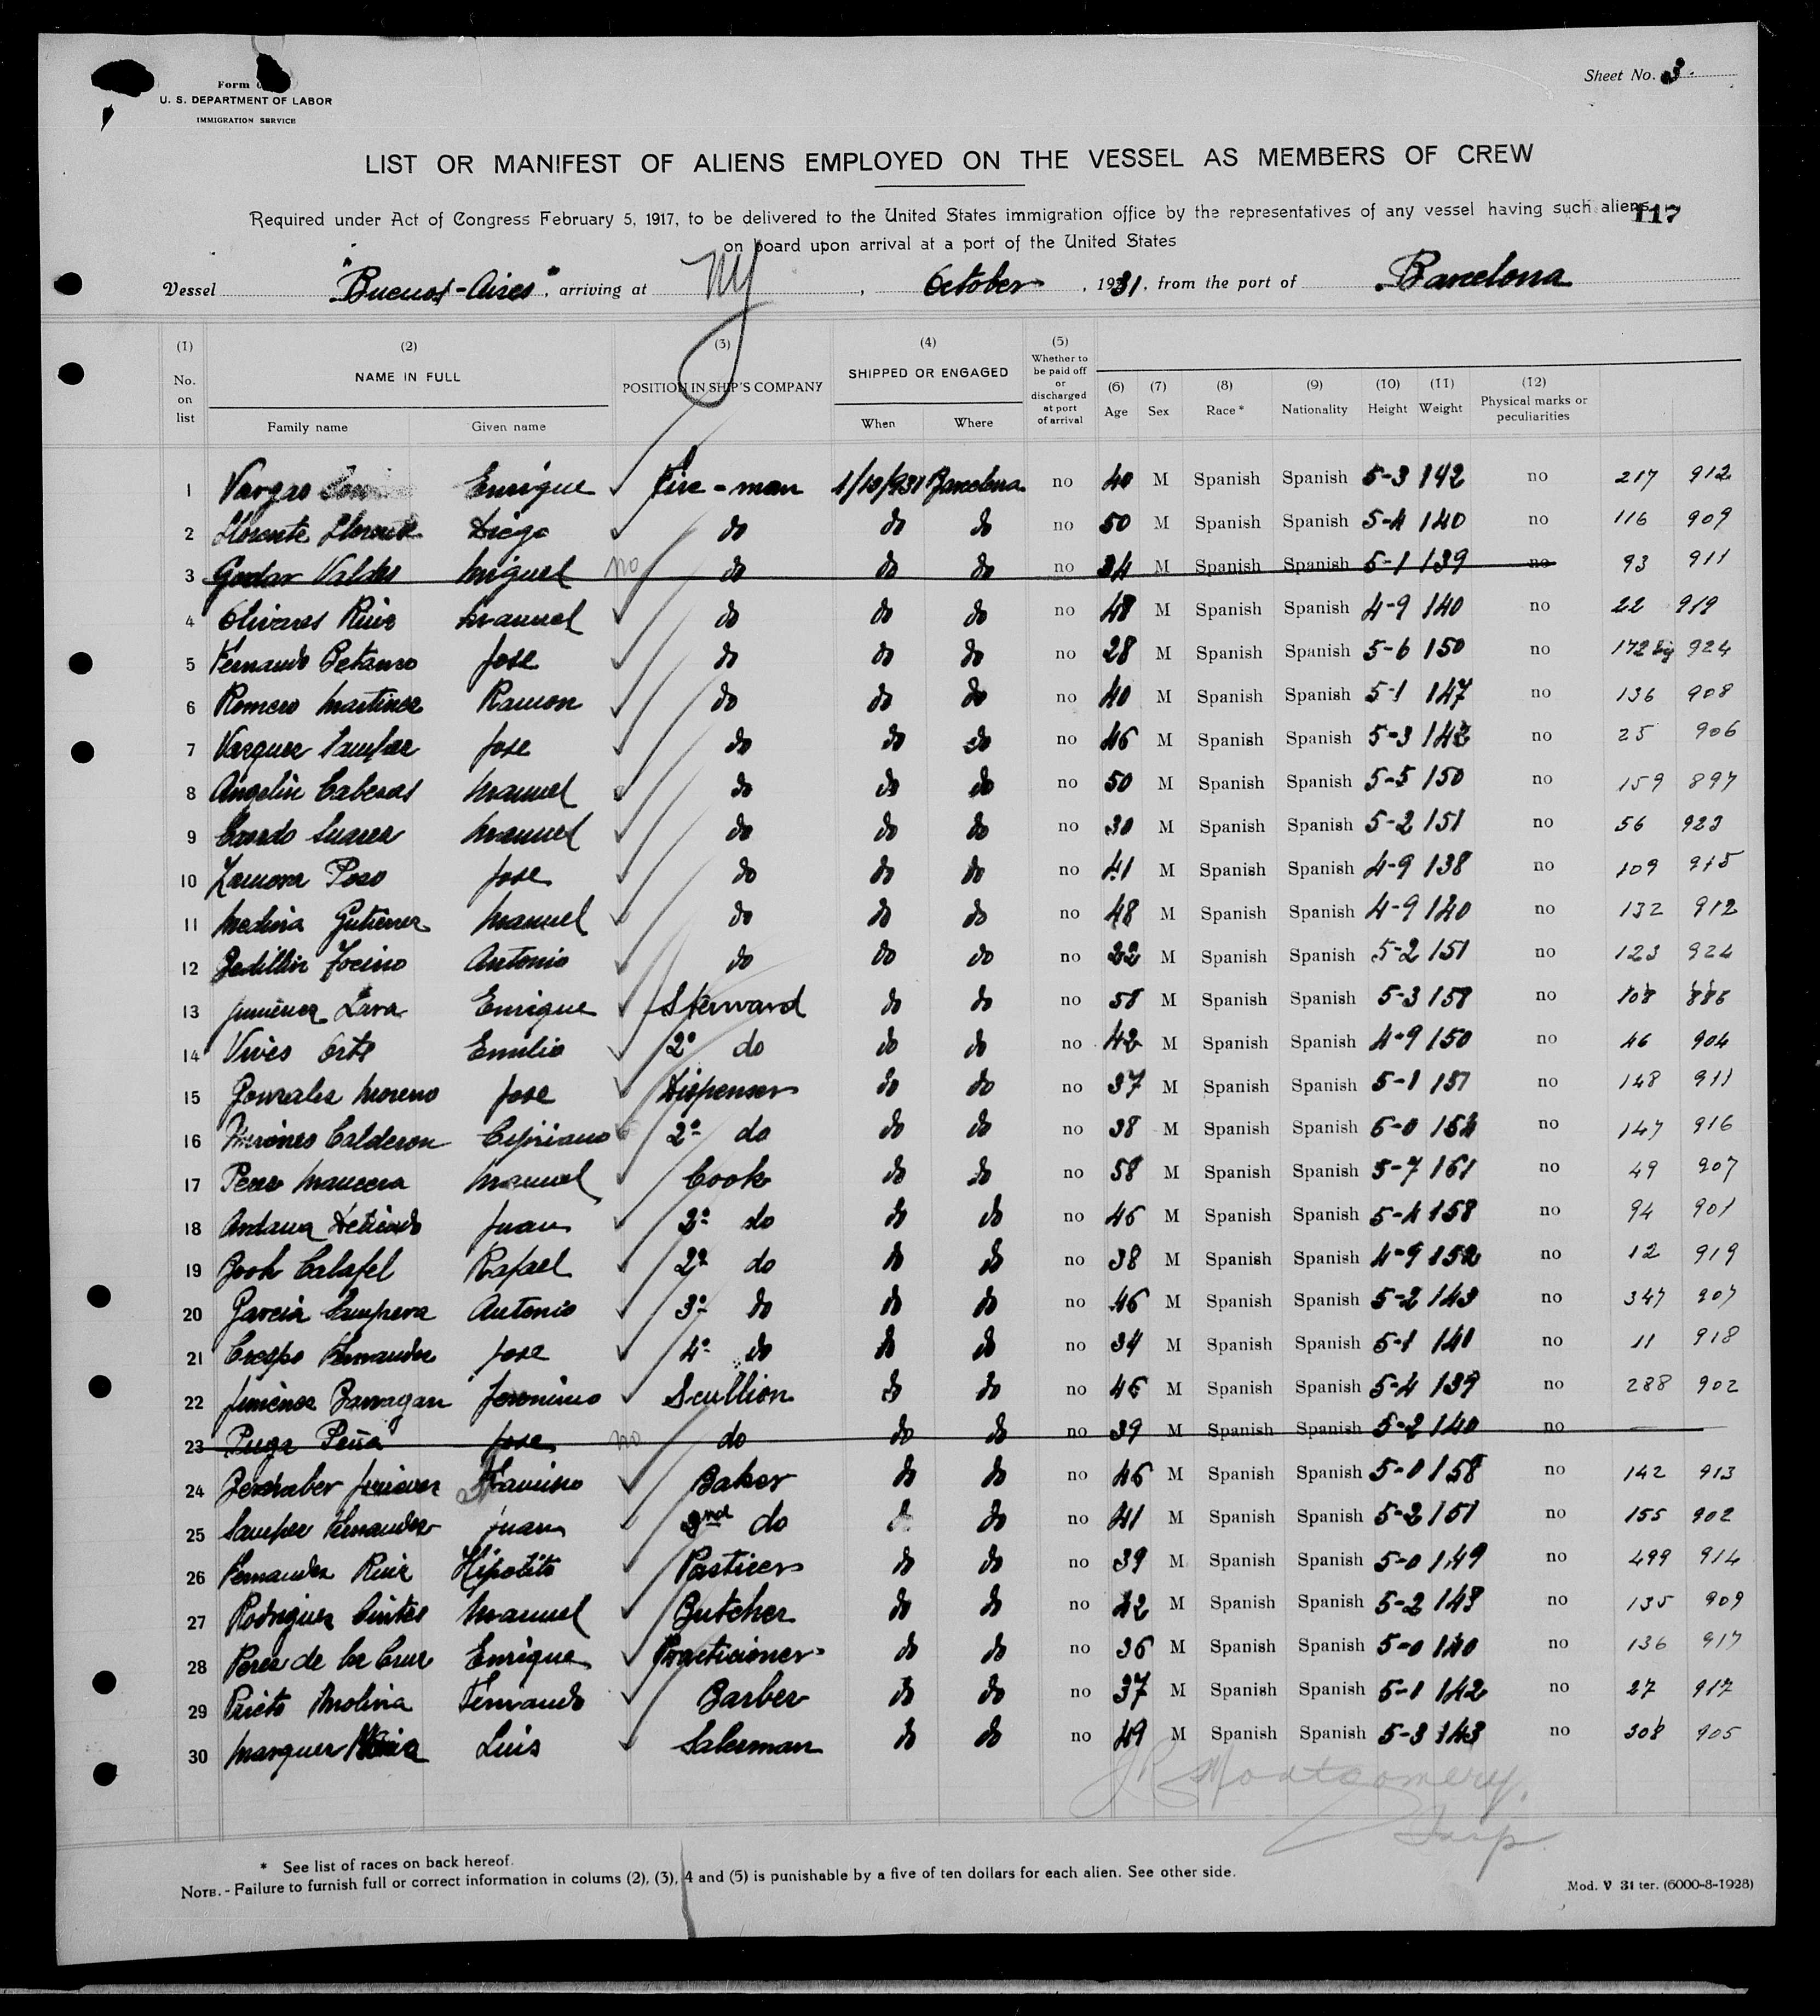 Sheet No. 3
Form
U. S. DEPARTMENT OF LABOR
IMMIGRATION SERVICE
LIST OR MANIFEST OF ALIENS EMPLOYED ON THE VESSEL AS MEMBERS OF CREW
Required under Act of Congress February 5, 1917, to be delivered to the United States immigration office by the representatives of any vessel having such aliens
117
on board upon arrival at a port of the United States
Vessel "Buenos-Aires", arriving at NY, October, 1931, from the port of Barcelona
(1) No. on list (2) NAME IN FULL Family name Given name (3) POSITION IN SHIP'S COMPANY (4) SHIPPED OR ENGAGED When Where (5) Whether to be paid off or discharged at port of arrival (6) Age (7) Sex (8) Race* (9) Nationality (10) Height (11) Weight (12) Physical marks or peculiarities
1 Vargas Enrique Fire-man 1/10/931 Barcelona no 40 M Spanish Spanish 5-3 142 no 217 912
2 Llorente Llorente Diego do do do no 50 M Spanish Spanish 5-4 140 no 116 909
3 Godar Valdes Miguel no do do do no 34 M Spanish Spanish 5-1 139 no 93 911
4 Olivares Ruiz Manuel do do do no 48 M Spanish Spanish 4-9 140 no 22 919
5 Fernando Jose do do do no 28 M Spanish Spanish 5-6 150 no 172 924
6 Romero Martinez Ramon do do do no 40 M Spanish Spanish 5-1 147 no 136 908
7 Vazquez Samper Jose do do do no 46 M Spanish Spanish 5-3 142 no 25 906
8 Angelin Cabezas Manuel do do do no 50 M Spanish Spanish 5-5 150 no 159 897
9 Suarez Manuel do do do no 30 M Spanish Spanish 5-2 151 no 56 923
10 Zamora Pozo Jose do do do no 41 M Spanish Spanish 4-9 138 no 109 915
11 Medina Gutierrez Manuel do do do no 48 M Spanish Spanish 4-9 140 no 132 912
12 Tocino Antonio do do do no 22 M Spanish Spanish 5-2 151 no 123 924
13 Jimenez Lara Enrique Sterward do do no 58 M Spanish Spanish 5-3 158 no 108 886
14 Vives Orts Emilio 2º do do do no 42 M Spanish Spanish 4-9 150 no 46 904
15 Gonzalez Moreno Jose Dispenser do do no 37 M Spanish Spanish 5-1 151 no 148 911
16 Calderon Cipriano 2º do do do no 38 M Spanish Spanish 5-0 154 no 147 916
17 Perez Mancera Manuel Cook do do no 58 M Spanish Spanish 5-7 161 no 49 907
18 Juan 2º do do do no 46 M Spanish Spanish 5-4 158 no 94 901
19 Calafel Rafael 2º do do do no 38 M Spanish Spanish 4-9 152 no 12 919
20 Garcia Sampera Antonio 3º do do do no 46 M Spanish Spanish 5-2 143 no 347 907
21 Crespo Fernandez Jose 4º do do do no 34 M Spanish Spanish 5-1 140 no 11 918
22 Jimenez Barragan Jeronimo Scullion do do no 46 M Spanish Spanish 5-4 139 no 288 902
23 Puga Peña Jose no do do do no 39 M Spanish Spanish 5-2 140 no
24 Francisco Baker do do no 46 M Spanish Spanish 5-0 158 no 142 913
25 Samper Fernandez Juan 2nd do do do no 41 M Spanish Spanish 5-2 151 no 155 902
26 Fernandez Ruiz Hipolito Pasticer do do no 39 M Spanish Spanish 5-0 149 no 499 914
27 Rodriguez Manuel Butcher do do no 42 M Spanish Spanish 5-2 148 no 135 909
28 Perez de la Cruz Enrique Practicioner do do no 36 M Spanish Spanish 5-0 140 no 136 917
29 Prieto Molina Fernando Barber do do no 37 M Spanish Spanish 5-1 142 no 27 917
30 Marquez Luis Salesman do do no 49 M Spanish Spanish 5-3 143 no 308 905
Montgomery.
Insp
* See list of races on back hereof.
NOTE. - Failure to furnish full or correct information in colums (2), (3), 4 and (5) is punishable by a five of ten dollars for each alien. See other side.
Mod. V 31 ter. (6000-8-1928)